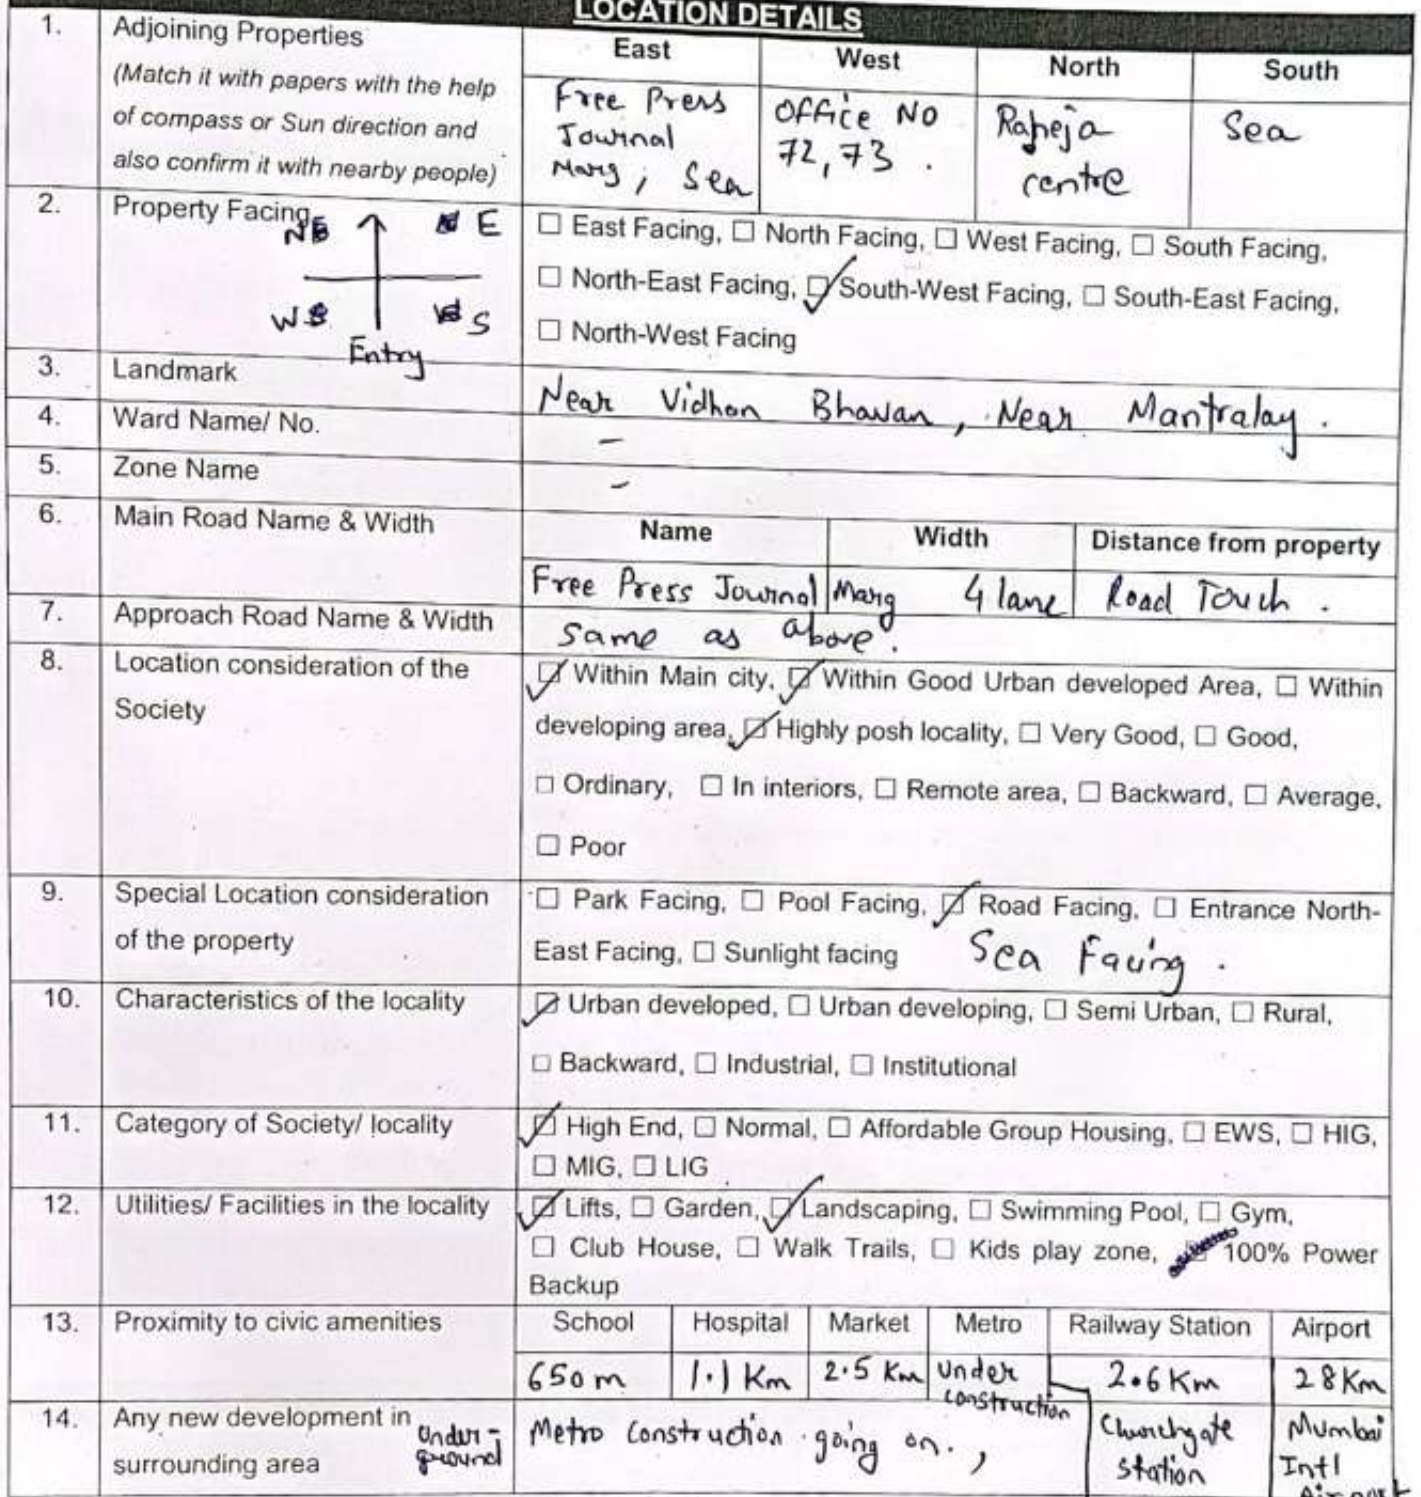 LOCATION DETAILS
1. Adjoining Properties
(Match it with papers with the help
of compass or Sun direction and
also confirm it with nearby people)
East West North South
Free Press
Journal
Marg, Sea
Office No
72, 73 .
Raheja
centre
Sea
2. Property Facing
N E
W S
Entry
☐ East Facing, ☐ North Facing, ☐ West Facing, ☐ South Facing,
☐ North-East Facing, ☑ South-West Facing, ☐ South-East Facing,
☐ North-West Facing
3. Landmark
Near Vidhan Bhavan, Near Mantralay.
4. Ward Name/ No. –
5. Zone Name –
6. Main Road Name & Width
Name Width Distance from property
Free Press Journal Marg 4 lane Road Touch .
7. Approach Road Name & Width
Same as above.
8. Location consideration of the
Society
☑ Within Main city, ☑ Within Good Urban developed Area, ☐ Within
developing area, ☑ Highly posh locality, ☐ Very Good, ☐ Good,
☐ Ordinary, ☐ In interiors, ☐ Remote area, ☐ Backward, ☐ Average,
☐ Poor
9. Special Location consideration
of the property
☐ Park Facing, ☐ Pool Facing, ☑ Road Facing, ☐ Entrance North-
East Facing, ☐ Sunlight facing Sea Facing .
10. Characteristics of the locality
☑ Urban developed, ☐ Urban developing, ☐ Semi Urban, ☐ Rural,
☐ Backward, ☐ Industrial, ☐ Institutional
11. Category of Society/ locality
☑ High End, ☐ Normal, ☐ Affordable Group Housing, ☐ EWS, ☐ HIG,
☐ MIG, ☐ LIG
12. Utilities/ Facilities in the locality
☑ Lifts, ☐ Garden, ☑ Landscaping, ☐ Swimming Pool, ☐ Gym,
☐ Club House, ☐ Walk Trails, ☐ Kids play zone, 100% Power
Backup
13. Proximity to civic amenities
School Hospital Market Metro Railway Station Airport
650 m 1.1 Km 2.5 Km Under
construction
2.6 Km 28 Km
Churchgate
Station
Mumbai
Intl
Airport
14. Any new development in
surrounding area
Under-
ground
Metro Construction going on. ,